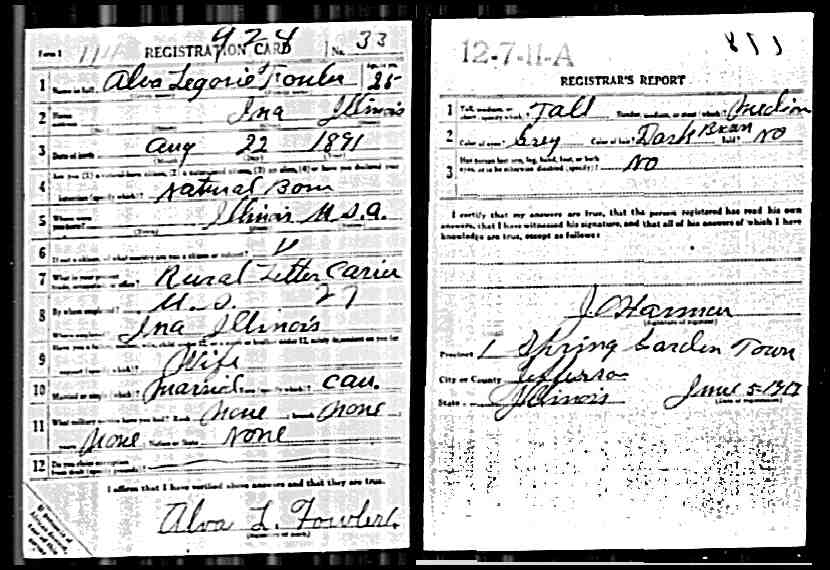 Form 1 1111 REGISTRATION CARD 424 No. 33
1 Name in full Alva Legorie Fowler Age, in yrs. 25
2 Home address Ina Illinois
3 Date of birth Aug 22 1891
(Month) (Day) (Year)
4 Are you (1) a natural-born citizen, (2) a naturalized citizen, (3) an alien, (4) or have you declared your
intention (specify which)? Natural Born
5 Where were you born? Illinois U.S.A.
6 If not a citizen, of what country are you a citizen or subject?
7 What is your present trade, occupation, or office? Rural Letter Carier
8 By whom employed? U.S. 27
Where employed? Ina Illinois
9 Have you a father, mother, wife, child under 12, or a sister or brother under 12, solely dependent on you for
support (specify which)? Wife
10 Married or single (which)? Married Race (specify which)? Cau.
11 What military service have you had? Rank None branch None
years None Nation or State None
12 Do you claim exemption
from draft (specify grounds)?
I affirm that I have verified above answers and that they are true.
Alva L. Fowler.
12-7-11-A
REGISTRAR'S REPORT
1 Tall, medium, or short (specify which)? Tall Slender, medium, or stout (which)? Medium
2 Color of eyes? Grey Color of hair? Dark Bran Bald? No
3 Has person lost arm, leg, hand, foot, or both
eyes, or is he otherwise disabled (specify)? No
I certify that my answers are true, that the person registered has read his own
answers, that I have witnessed his signature, and that all of his answers of which I have
knowledge are true, except as follows:
(Signature of registrar)
Precinct 1 Spring Garden Town
City or County Jefferson
State Illinois June 5-1917
(Date of registration)